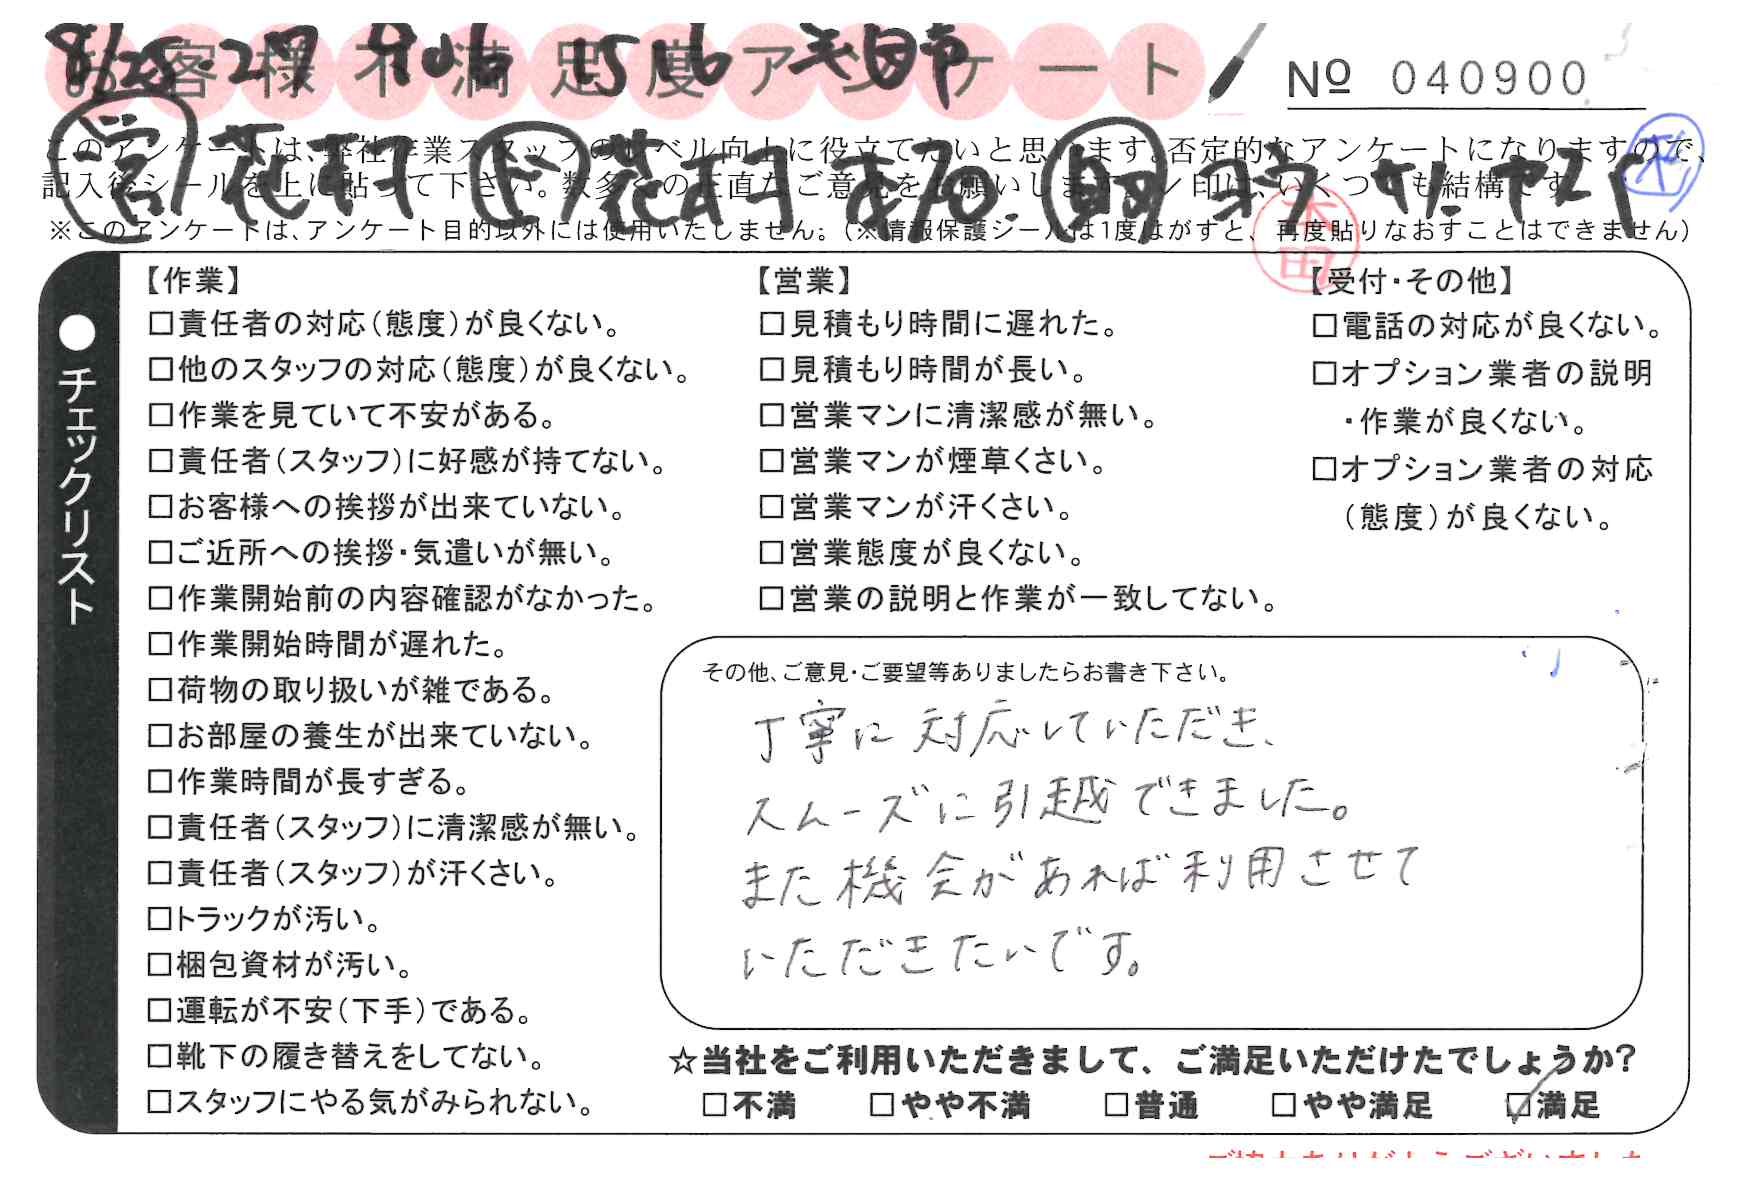 お客様不満足度アンケート
No 040900
このアンケートは、弊社作業スタッフのレベル向上に役立てたいと思います。否定的なアンケートになりますので、
記入後シールを上に貼って下さい。数多くの正直なご意見をお願いします。
※このアンケートは、アンケート目的以外には使用いたしません。(※情報保護シールは1度はがすと、再度貼りなおすことはできません)
●チェックリスト
【作業】
□責任者の対応(態度)が良くない。
□他のスタッフの対応(態度)が良くない。
□作業を見ていて不安がある。
□責任者(スタッフ)に好感が持てない。
□お客様への挨拶が出来ていない。
□ご近所への挨拶・気遣いが無い。
□作業開始前の内容確認がなかった。
□作業開始時間が遅れた。
□荷物の取り扱いが雑である。
□お部屋の養生が出来ていない。
□作業時間が長すぎる。
□責任者(スタッフ)に清潔感が無い。
□責任者(スタッフ)が汗くさい。
□トラックが汚い。
□梱包資材が汚い。
□運転が不安(下手)である。
□靴下の履き替えをしてない。
□スタッフにやる気がみられない。
【営業】
□見積もり時間に遅れた。
□見積もり時間が長い。
□営業マンに清潔感が無い。
□営業マンが煙草くさい。
□営業マンが汗くさい。
□営業態度が良くない。
□営業の説明と作業が一致してない。
【受付・その他】
□電話の対応が良くない。
□オプション業者の説明
・作業が良くない。
□オプション業者の対応
(態度)が良くない。
その他、ご意見・ご要望等ありましたらお書き下さい。
丁寧に対応していただき、
スムーズに引越できました。
また機会があれば利用させて
いただきたいです。
☆当社をご利用いただきまして、ご満足いただけたでしょうか?
□不満 □やや不満 □普通 □やや満足 ☑満足